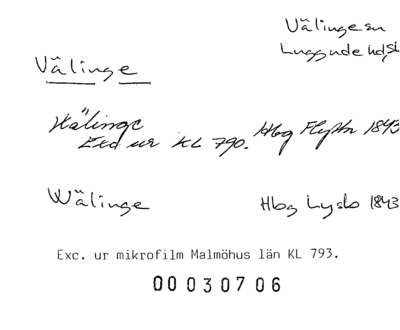 Välinge sn
Luggude hd, sk
Välinge
Wälinge
Exc ur KL 790. Hbg 1843
Wälinge Hbg Lysbo 1843
Exc. ur mikrofilm Malmöhus län KL 793.
00 030706